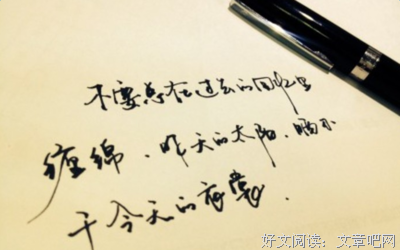 不要总在过去的回忆里
缠绵、昨天的太阳、晒不
干今天的衣裳.
好文阅读：文章吧网